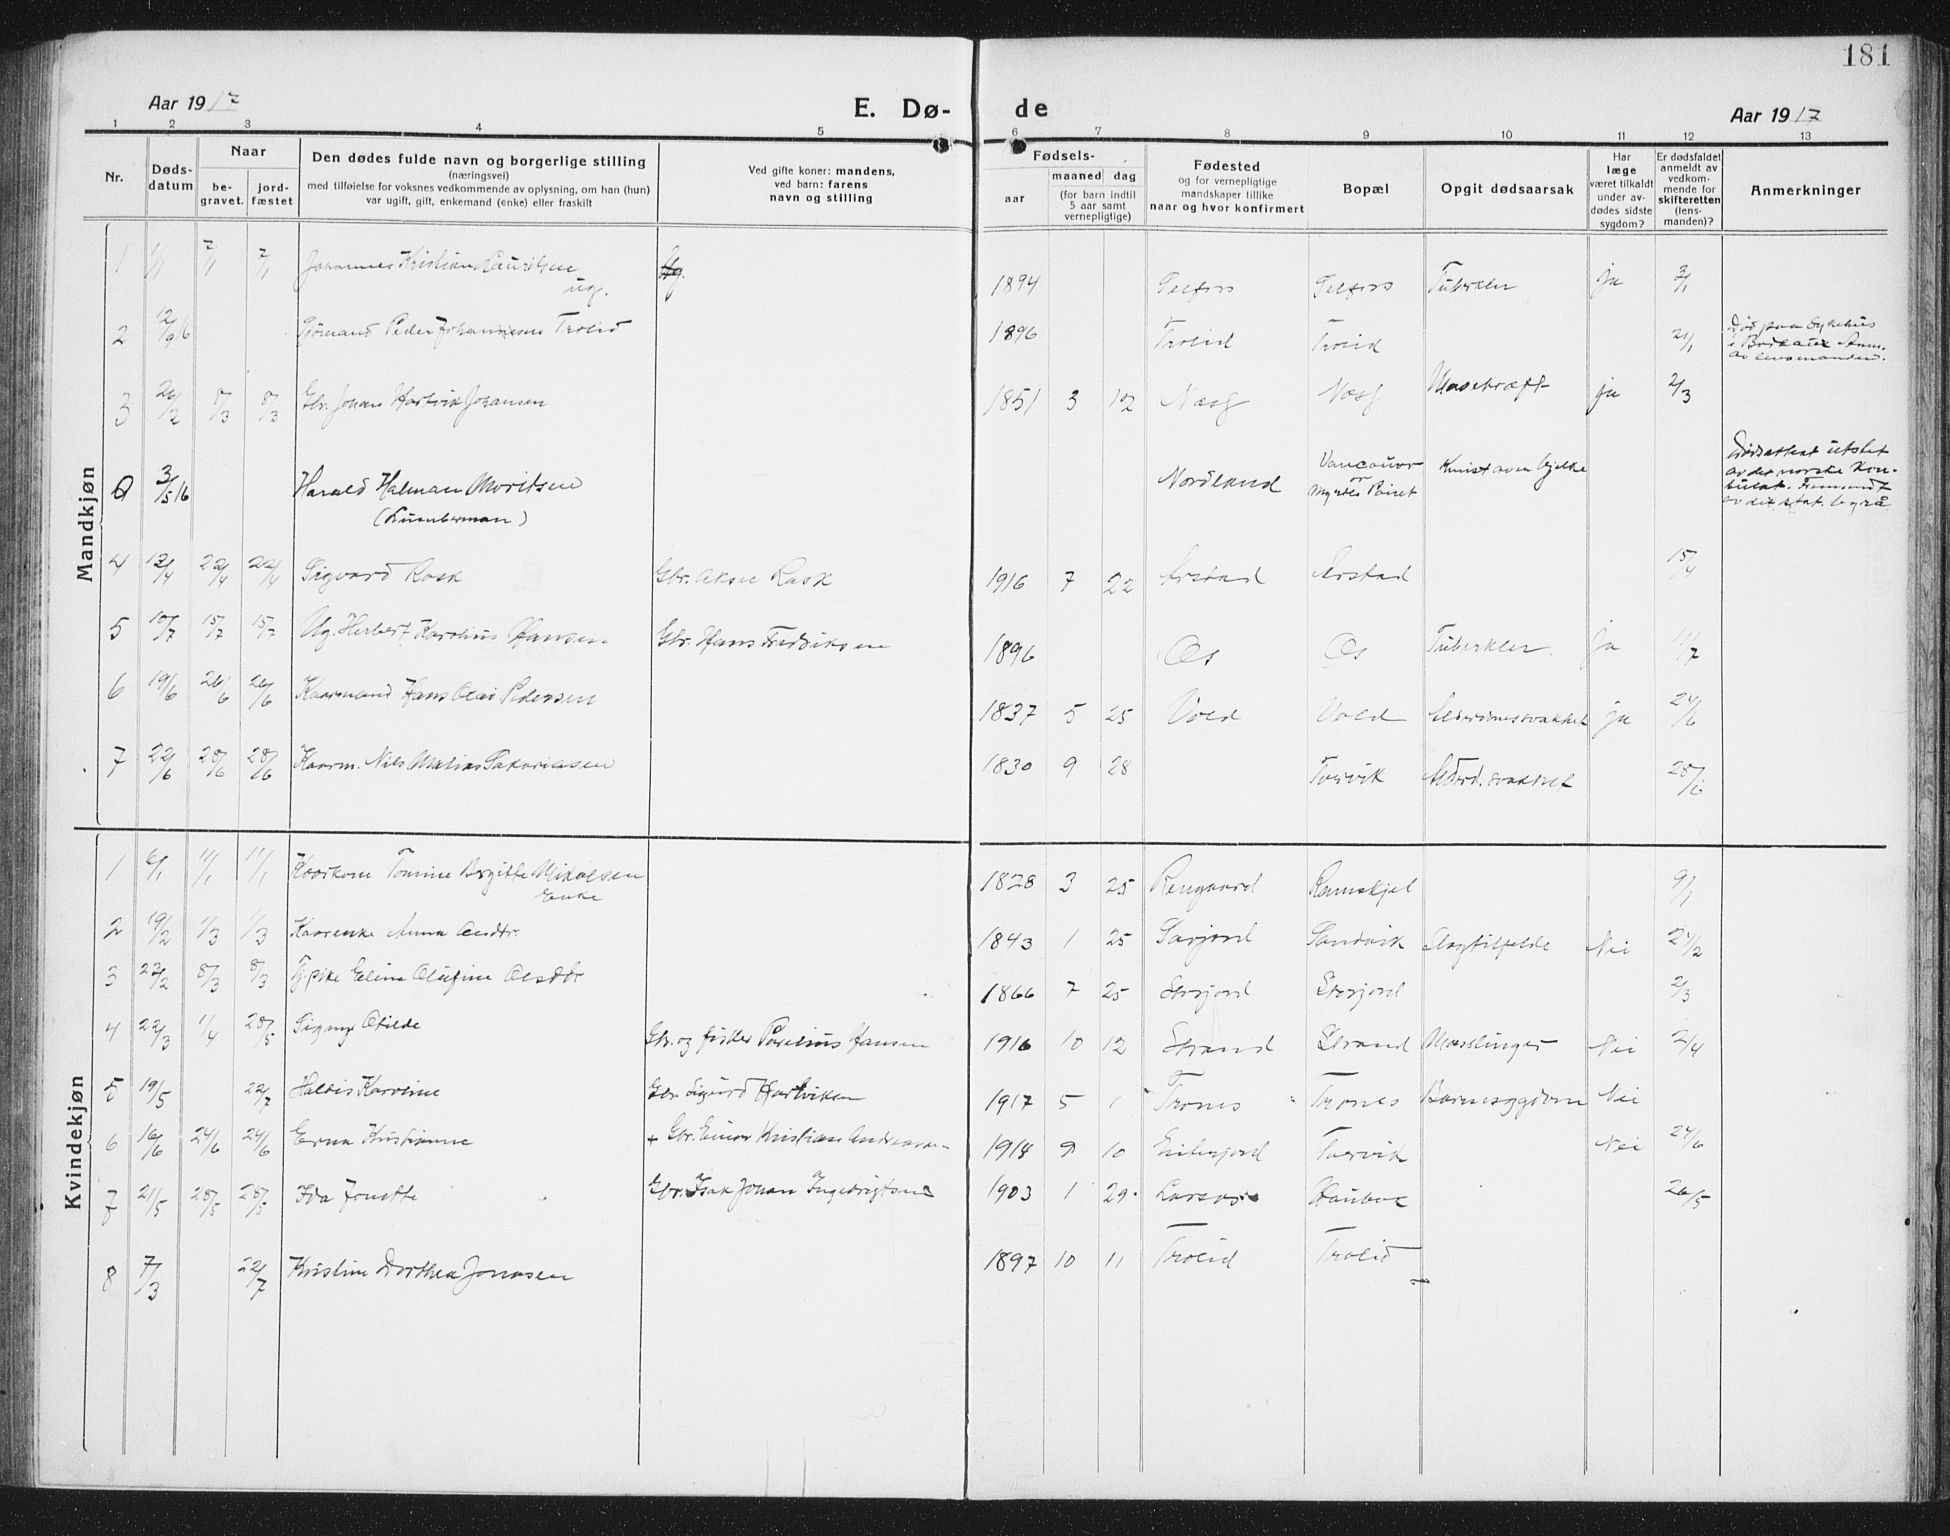 181
Aar 1917 E. Dø- de Aar 1917
1 2 3 4 5 6 7 8 9 10 11 12 13
Nr. Døds-datum Naar be-gravet. jord-fæstet Den dødes fulde navn og borgerlige stilling (næringsvei) med tilføielse for voksnes vedkommende av oplysning, om han (hun) var ugift, gift, enkemand (enke) eller fraskilt Ved gifte koner: mandens, ved barn: farens navn og stilling Fødsels- aar maaned dag (for barn indtil 5 aar samt vernepligtige) Fødested og for vernepligtige mandskaper tillike naar og hvor konfirmert Bopæl Opgit dødsaarsak Har læge været tilkaldt under av-dødes sidste sygdom? Er dødsfaldet anmeldt av vedkom-mende for skifteretten (lens-manden)? Anmerkninger
Mandkjøn
1 1/1 7/1 7/1 Johannes Kristian Lauritsen ug. 1894 Selfors Selfors Tuberkler ja 3/1
2 12/9 16 Sømand Peder Johannesen Trolid 1896 Trolid Trolid 21/1 Død paa Sykehus i Anm. av lensmanden.
3 26/2 8/3 8/3 Gbr. Johan Hartvik Johansen 1851 3 12 Næsf Næsf ja 2/3
0 3/5 16 Harald Halman Moritsen (Lumberman) Nordland Vancouver Knust av en bjelke Dødsattest utstet av det norske Kon-sulat. Fremsendt av det stat. byrå
4 13/4 22/4 22/4 Sigvard Rask Gbr. Aksel Rask 1916 7 22 Arstad Arstad 15/4
5 10/7 15/7 15/7 Ug. Herbert Karolius Hansen Gbr. Hans Fredriksen 1896 Os Os Tuberkler ja 11/7
6 19/6 26/6 26/6 Kaarmand Hans Olai Pedersen 1837 5 25 Vold Vold Alderdomssvakhet ja 24/6
7 22/6 28/6 28/6 Kaarm. Nils Matias Sakariasen 1830 9 28 Tvervik Alderd.svakhet 28/6
Kvindekjøn
1 6/1 11/1 11/1 Kaarkone Tomine Birgitte Mikalsen Enke 1828 3 25 Rengaard Ramskjel 9/1
2 19/2 1/3 1/3 Kaarenke Anna Olsdtr. 1843 1 25 Sarjord Sandvik Slagtilfelde Nei 24/2
3 23/2 8/3 8/3 Tj.pike Eline Olufine Olsdtr 1866 7 25 Storjord Storjord 2/3
4 22/3 1/4 28/5 Signy Otilde Gbr. og fisker Parelius Hansen 1916 10 12 Strand Strand Mæslinger Nei 2/4
5 19/5 22/7 Haldis Karoline Gbr. Sigurd Hartviksen 1917 5 1 Trones Trones Barnesygdom Nei
6 16/6 24/6 24/6 Erna Kristianne + Gbr. Einar Kristian 1914 9 10 Tvervik Nei 24/6
7 21/5 28/5 28/5 Ida Jonette Gbr. Isak Johan Ingebrigtsen 1903 1 29 Larsos Haubak 26/5
8 7/3 22/7 Kristine Dorthea Jonasen 1897 10 11 Trolid Trolid